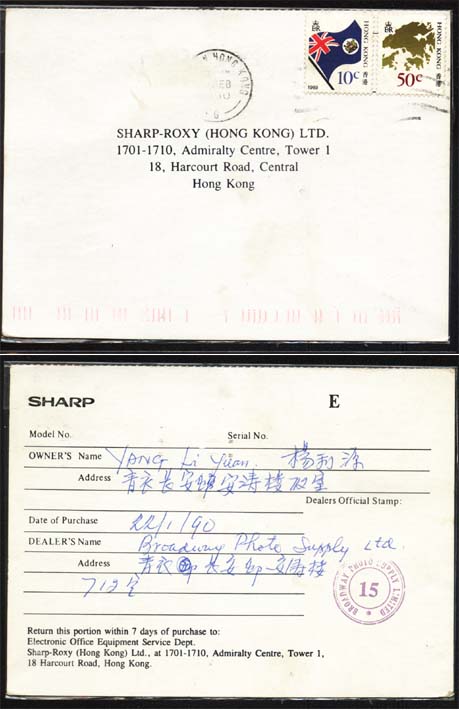 HONG KONG
FEB
HONG KONG 香港
10¢
1989
HONG KONG 香港
50¢
SHARP-ROXY (HONG KONG) LTD.
1701-1710, Admiralty Centre, Tower 1
18, Harcourt Road, Central
Hong Kong
SHARP
E
Model No.
Serial No.
OWNER'S Name YANG Li Yuan. 楊利源
Address 青衣長安邨安濤楼
Dealers Official Stamp:
Date of Purchase 22/1/90
DEALER'S Name Broadway Photo Supply Ltd.
Address 青衣 長安邨 楼
712室
BROADWAY PHOTO SUPPLY LIMITED
15
Return this portion within 7 days of purchase to:
Electronic Office Equipment Service Dept.
Sharp-Roxy (Hong Kong) Ltd., at 1701-1710, Admiralty Centre, Tower 1,
18 Harcourt Road, Hong Kong.